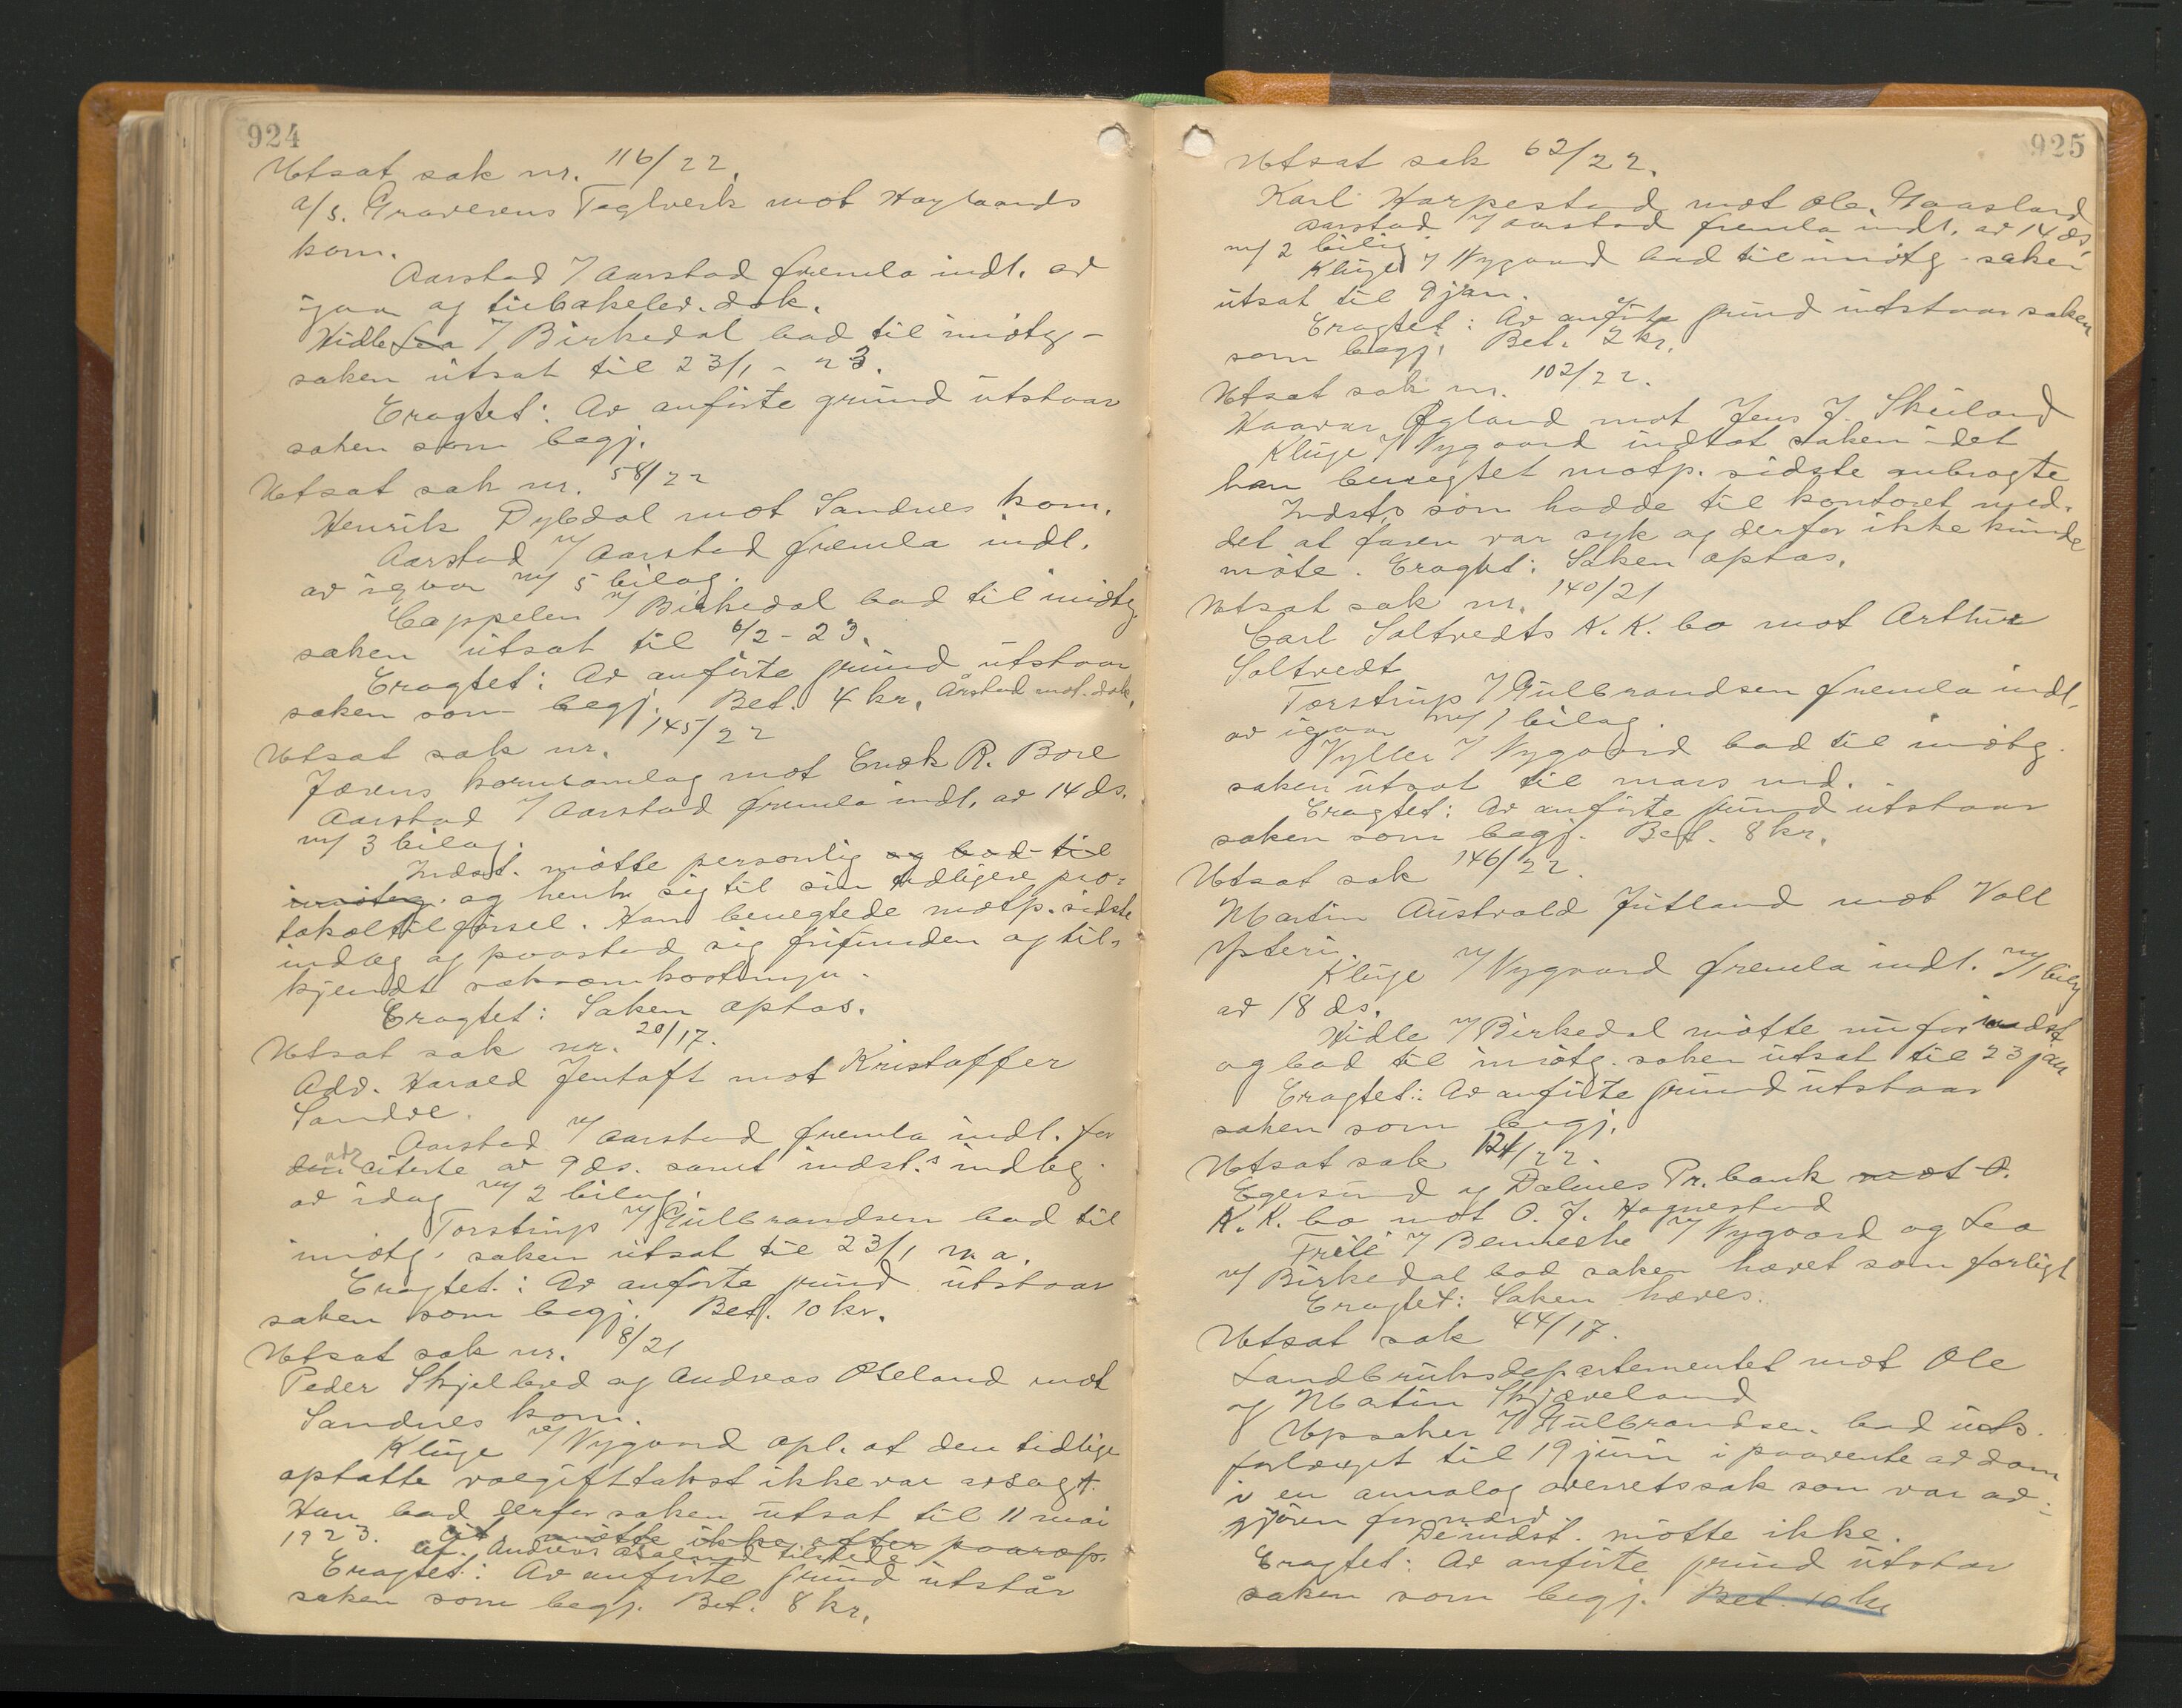 924
Utsat sak nr. 116/22.
a/s. Graverens Teglverk mot Høylaands
kom.
Aarstad v/ Aarstad fremla indl. av
igaar og tilbakelev. dok.
Hidle v/ Birkedal bad til imøtg-
saken utsat til 23/1 - 23.
Eragtet: Av anførte grund utstaar
saken som begj.
Utsat sak nr. 58/22
Henrik Dybdal mot Sandnes kom.
Aarstad v/ Aarstad fremla indl.
av igaar m/ 5 bilag.
Cappelen v/ Birkedal bad til imøtg.
saken utsat til 6/2 - 23.
Eragtet: Av anførte grund utstaar
saken som begj. Bet. 4 kr. Årstad mot. dok.
Utsat sak nr. 145/22
Jærens kornsamlag mot Enok R. Bore
Aarstad v/ Aarstad fremla indl. av 14 ds.
m/ 3 bilag.
Indst. møtte personlig og bad til
imøteg. og henh. sig til sin tidligere pro-
tokoltilførsel. Han benegtede motp. sidste
indlæg og paastod sig frifunden og til-
kjendt saksomkostninger.
Eragtet: Saken optas.
Utsat sak nr. 20/17.
Adv. Harald Jentoft mot Kristoffer
Sandve.
Aarstad v/ Aarstad fremla indl. for
den citerte av 9 ds. samt indst.s indlæg
av idag m/ 2 bilag.
Torstrup v/ Gulbrandsen bad til
imøtg. saken utsat til 23/1 n. a.
Eragtet: Av anførte grund utstaar
saken som begj. Bet. 10 kr.
Utsat sak nr. 8/21
Peder Skjelbred og Andreas Aseland mot
Sandnes kom.
Kluge v/ Nygaard opl. at den tidlige
optatte voldgiftstakst ikke var avsagt.
Han bad derfor saken utsat til 11 mai
1923. cit. møtte ikke efter paarop.
Andreas Aseland tilstede
Eragtet: Av anførte grund utstår
saken som begj. Bet. 8 kr.
925
Utsat sak 62/22.
Karl Harpestad mot Ole Gaasland
Aarstad v/ Aarstad fremla indl. av 14 ds.
m/ 2 bilag
Kluge v/ Nygaard bad til imøtg. saken
utsat til 9 jan.
Eragtet: Av anførte grund utstaar saken
som begj. Bet. 2 kr.
Utsat sak nr. 102/22.
Haavar Øgland mot Jens J. Skeiland
Kluge v/ Nygaard indlot saken idet
han benegtet motp. sidste anbragte
Indsts søn hadde til kontoret med-
delt at faren var syk og derfor ikke kunde
møte. Eragtet: Saken optas.
Utsat sak nr. 140/21
Carl Saltvedts K. K. bo mot Arthur
Saltvedt
Torstrup v/ Gulbrandsen fremla indl.
av igaar m/ 1 bilag.
Vyller v/ Nygaard bad til imøtg.
saken utsat til mars md.
Eragtet: Av anførte grund utstaar
saken som begj. Bet. 8 kr.
Utsat sak 146/22.
Martin Austvold Jutland mot Voll
Ysteri
Kluge v/ Nygaard fremla indl. m/ 1 bilag
av 18 ds.
Hidle v/ Birkedal møtte nu for indst
og bad til imøtg. saken utsat til 23 jan
Eragtet: Av anførte grund utstaar
saken som begj.
Utsat sak 124/22.
Egersund og Dalnes Pr. bank mot O.
K. K. bo mot O. J. Hognestad
Friis v/ Benneche v/ Nygaard og Lea
v/ Birkedal bad saken hævet som forligt
Eragtet: Saken hæves.
Utsat sak 44/17.
Landbruksdepartementet mot Ole
og Martin Skjæveland
Upsaker v/ Gulbrandsen bad uds.
forlænget til 19 juni i paavente av dom
i en annalog overretssak som var av-
gjøren
De indst. møtte ikke.
Eragtet: Av anførte grund utstaar
saken som begj. Bet. 10 kr